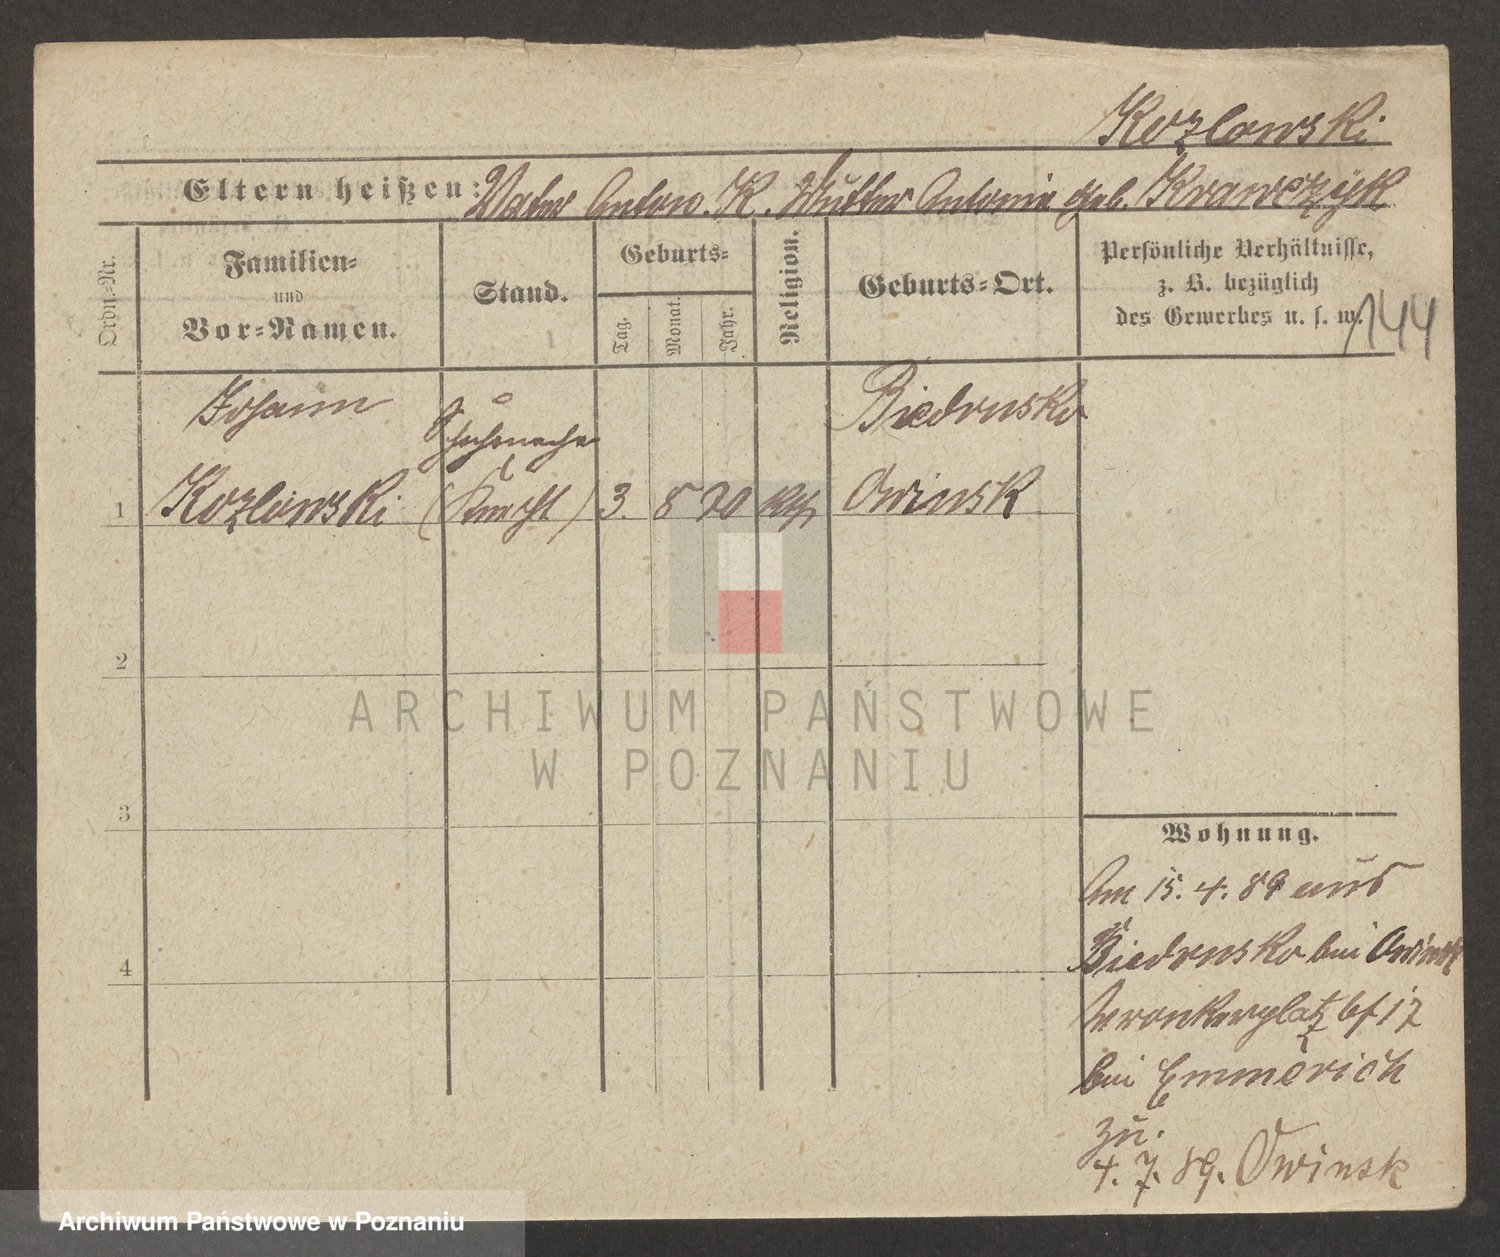 Kozlowski
Eltern heißen: Vater Anton K. Mutter Antonie geb. Krawczyk
Ordn.-Nr.
Familien-
und
Vor-Namen.
Stand.
Geburts-
Tag.
Monat.
Jahr.
Religion.
Geburts-Ort.
Persönliche Verhältnisse,
z. B. bezüglich
des Gewerbes u. s. w.
144
Johann
Schuhmacher
Biedrusko
1 Kozlowski (Knecht) 3. 8 70 kth Owinsk
2
3
4
ARCHIWUM PAŃSTWOWE
W POZNANIU
Wohnung.
Am 15. 4. 89 aus
Biedrusko bei Owinsk
Wronkerplatz 17
bei Emmerich
zu.
4. 7. 89. Owinsk
Archiwum Państwowe w Poznaniu